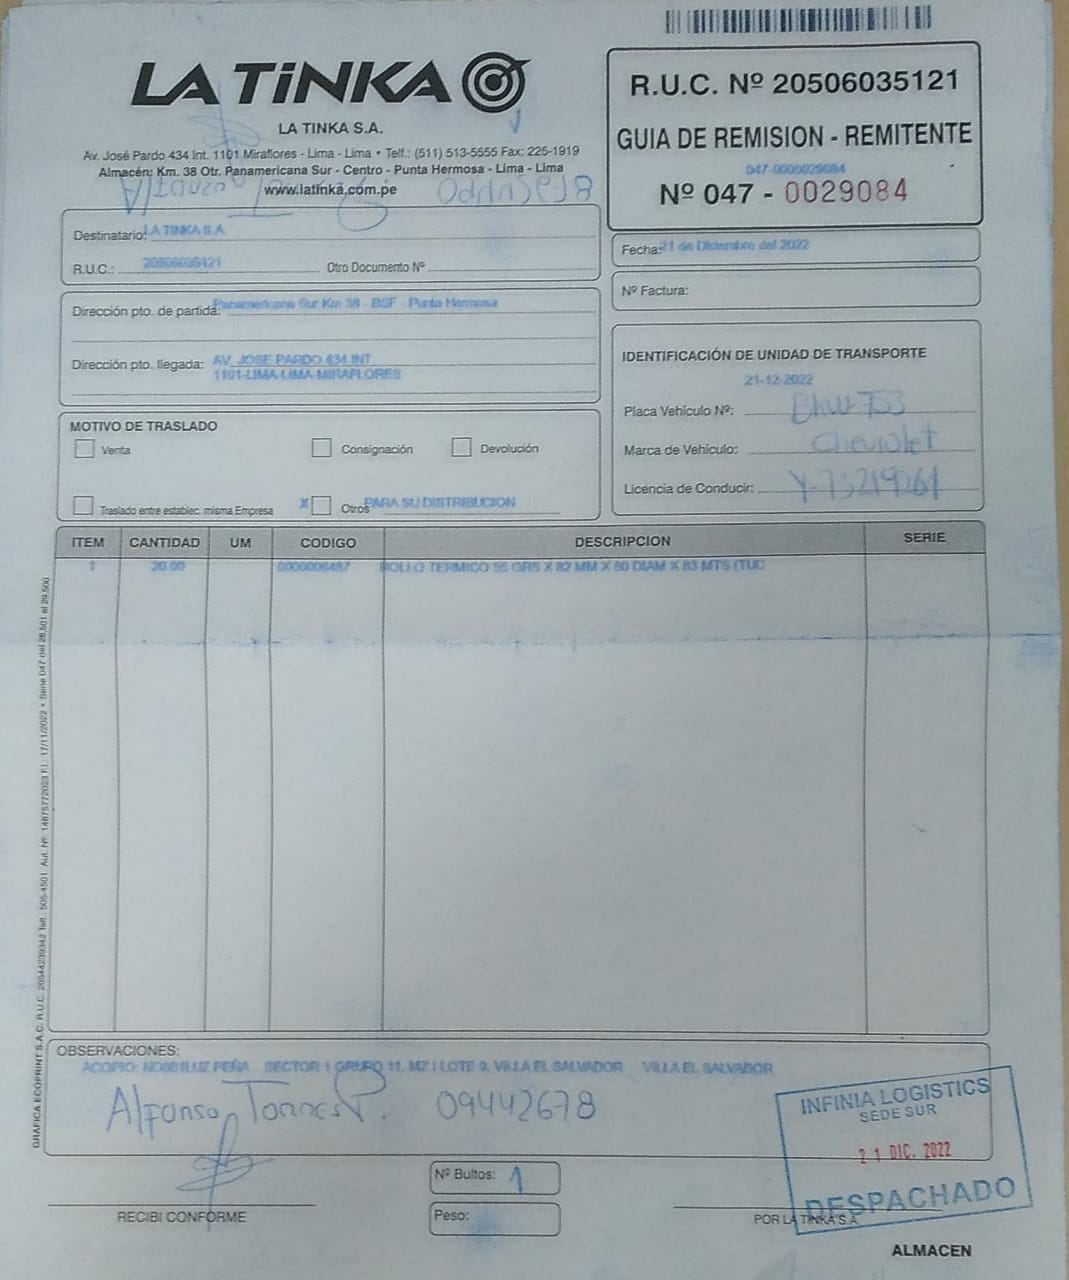 LA TiNKA
LA TINKA S.A.
Av. José Pardo 434 Int. 1101 Miraflores - Lima - Lima • Telf.: (511) 513-5555 Fax: 225-1919
Almacén: Km. 38 Otr. Panamericana Sur - Centro - Punta Hermosa - Lima - Lima
www.latinka.com.pe
R.U.C. Nº 20506035121
GUIA DE REMISION - REMITENTE
047-0000029084
Nº 047 - 0029084
Destinatario: LA TINKA S.A
R.U.C.: 20506035121 Otro Documento Nº
Fecha: 21 de Diciembre del 2022
Nº Factura:
Dirección pto. de partida: Panamericana Sur Km 38 - BSF - Punta Hermosa
Dirección pto. llegada: AV. JOSE PARDO 434 INT.
1101-LIMA-LIMA-MIRAFLORES
IDENTIFICACIÓN DE UNIDAD DE TRANSPORTE
21-12-2022
Placa Vehículo Nº: BKW-753
Marca de Vehículo: Chevrolet
Licencia de Conducir: Y-73219261
MOTIVO DE TRASLADO
Venta Consignación Devolución
Traslado entre establec. misma Empresa X Otros PARA SU DISTRIBUCION
ITEM CANTIDAD UM CODIGO DESCRIPCION SERIE
1 20.00 0000006487 ROLLO TERMICO 55 GRS X 82 MM X 80 DIAM X 83 MTS (TUC
GRAFICA ECOPRINT S.A.C. R.U.C. 20544239342 Telf.: 505-4501 Aut. Nº: 14875772023 F.I.: 17/11/2022 • Serie 047 del 28,501 al 29,500
OBSERVACIONES:
ACOPIO: NO001LUZ PEÑA SECTOR 1 GRUPO 11, MZ I LOTE 9, VILLA EL SALVADOR VILLA EL SALVADOR
Alfonso Torres P. 09442678
INFINIA LOGISTICS
SEDE SUR
21 DIC. 2022
DESPACHADO
Nº Bultos: 1
Peso:
RECIBI CONFORME
POR LA TINKA S.A.
ALMACEN